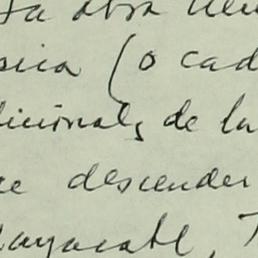 ta obra
sica (o cad
dicionales, de la
ce descender
layacatl,